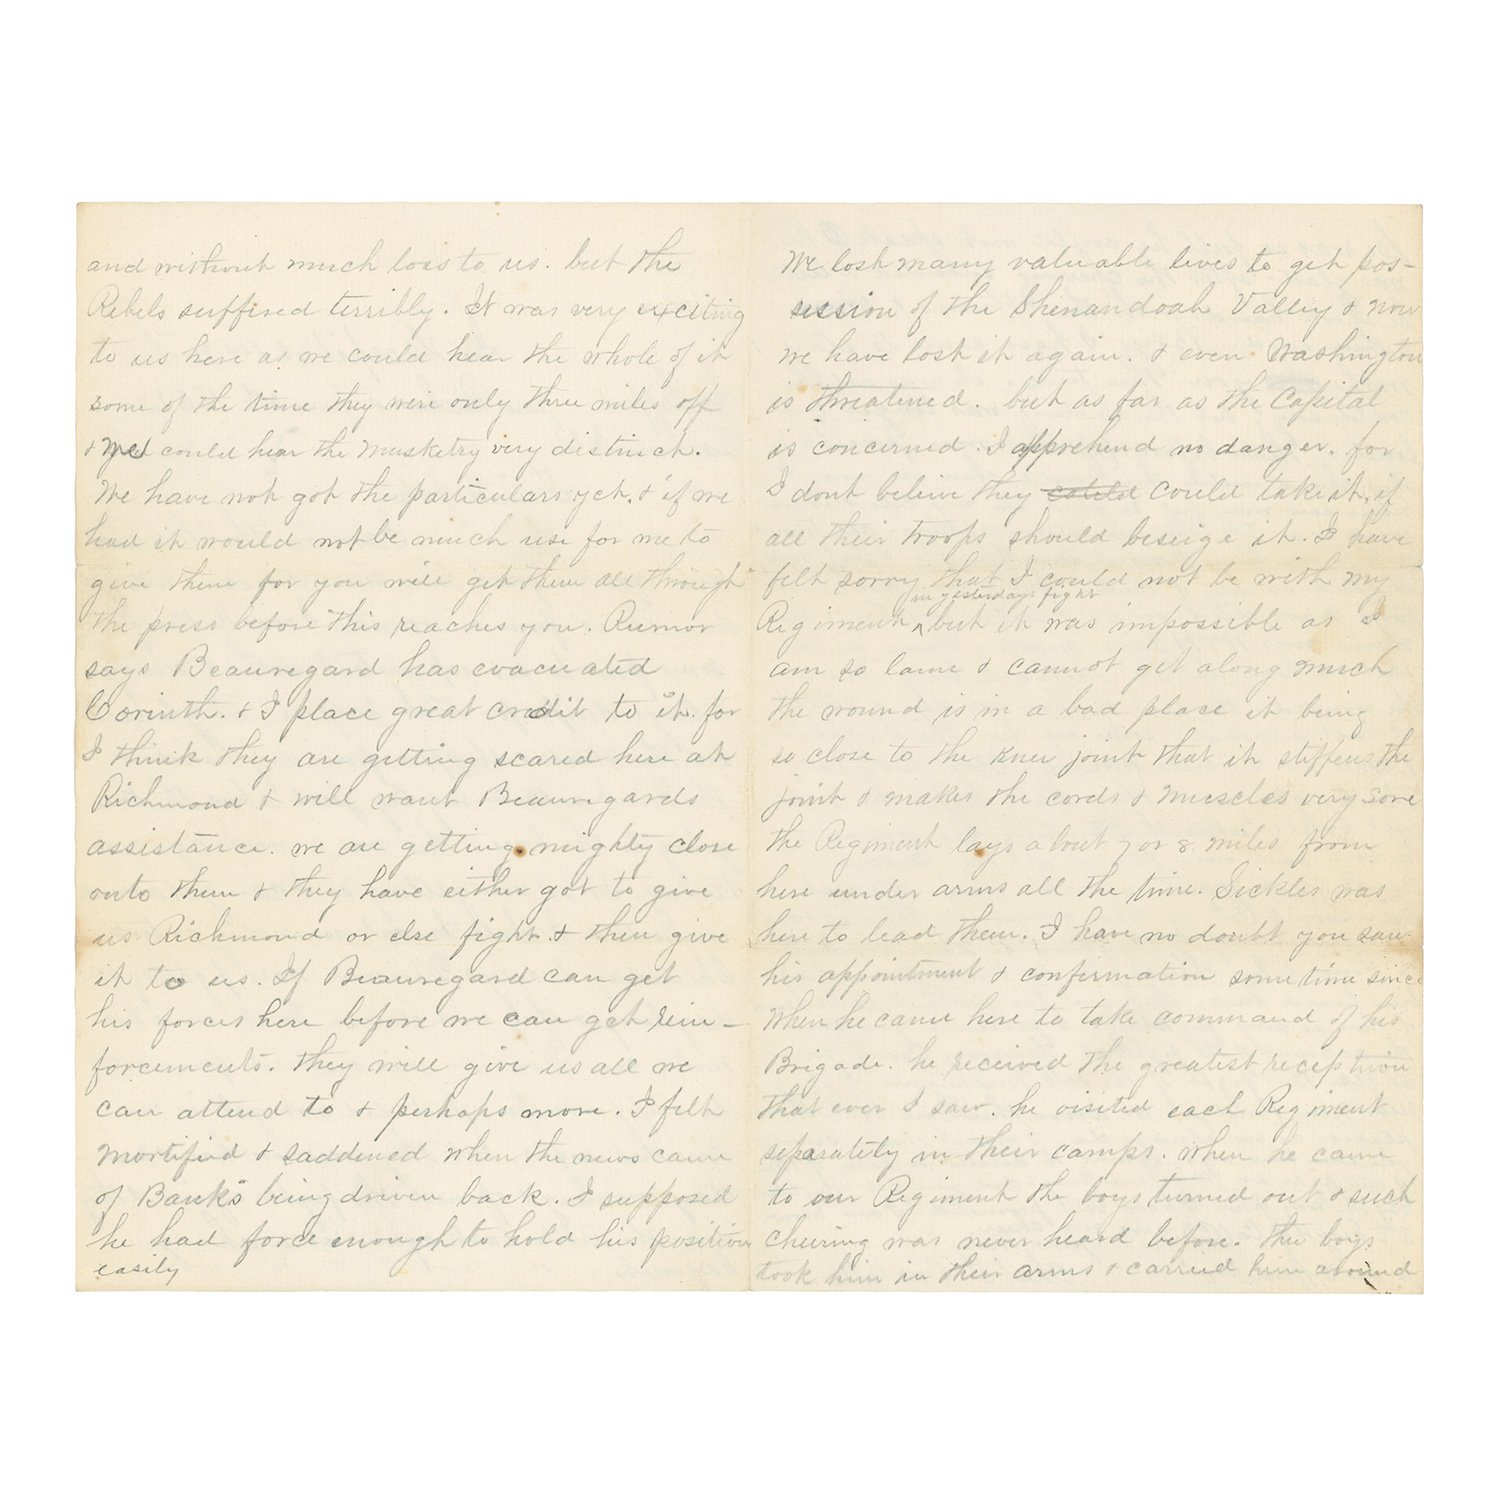 and without much loss to us. but the
Rebels suffired terribly. It was very exciting
to us here as we could hear the whole of it
some of the time they were only three miles off
& we could hear the Musketry very distinct.
We have not got the particulars yet, & if we
had it would not be much use for me to
give them for you will get them all through
the press before this reaches you. Rumor
says Beauregard has evacuated
Corinth. & I place great credit to it. for
I think they are getting scared here at
Richmond & will want Beauregards
assistance. we are getting mighty close
onto them & they have either got to give
us Richmond or else fight. & then give
it to us. If Beauregard can get
his forces here before we can get rein-
forcements. they will give us all we
can attend to & perhaps more. I felt
mortified & saddened when the news came
of Bank's being driven back. I supposed
he had force enough to hold his position
easily
We lost many valuable lives to get pos-
session of the Shenandoah Valley & now
we have lost it again. & even Washington
is threatened. but as far as the Capital
is concerned. I apprehend no danger. for
I dont beleive they could take it, if
all their troops should beseige it. I have
felt sorry that I could not be with my
in yesterdays fight
Regiment ^ but it was impossible as I
am so lame & cannot get along much
the wound is in a bad place it being
so close to the knee joint that it stiffens the
joint & makes the cords & muscles very sore
the Regiment lays about 7 or 8 miles from
here under arms all the time. Sickles was
here to lead them. I have no doubt you saw
his appointment & confirmation some time since
When he came here to take command of his
Brigade. he received the greatest reception
that ever I saw. he visited each Regiment
separately in their camps. when he came
to our Regiment the boys turned out & such
cheering was never heard before. the boys
took him in their arms & carried him around